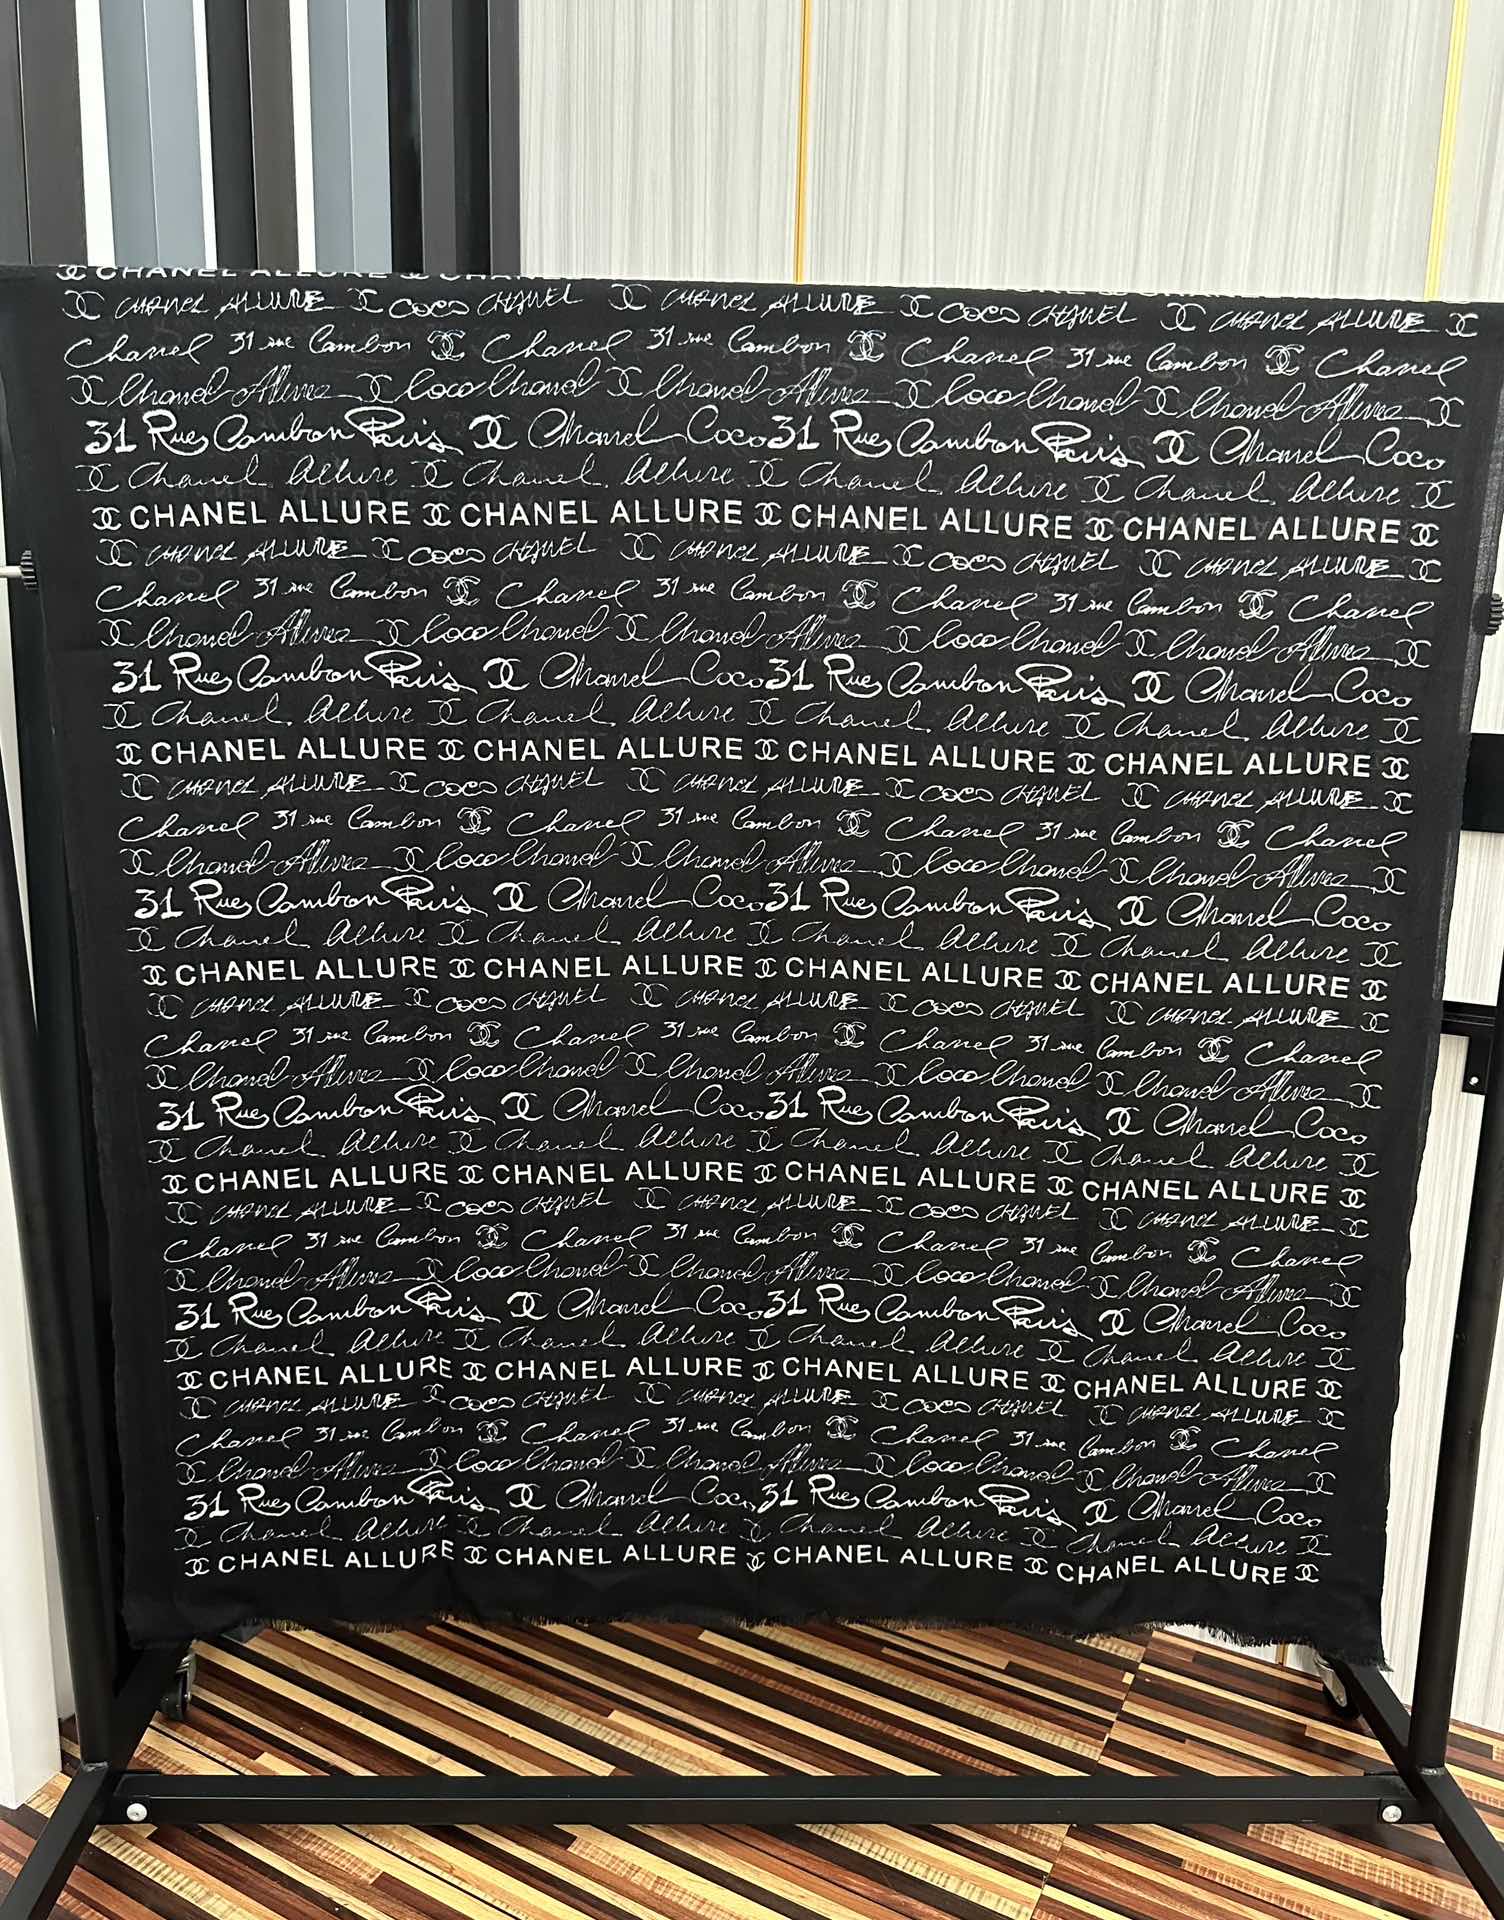 CHANEL ALLURE CHANEL
CHANEL ALLURE COCO CHANEL CHANEL ALLURE COCO CHANEL CHANEL ALLURE
Chanel 31 rue Cambon Chanel 31 rue Cambon Chanel 31 rue Cambon Chanel
Chanel Allure Coco Chanel Chanel Allure Coco Chanel Chanel Allure
31 Rue Cambon Paris Chanel Coco 31 Rue Cambon Paris Chanel Coco
Chanel Allure Chanel Allure Chanel Allure Chanel Allure
CHANEL ALLURE CHANEL ALLURE CHANEL ALLURE CHANEL ALLURE
CHANEL ALLURE COCO CHANEL CHANEL ALLURE COCO CHANEL CHANEL ALLURE
Chanel 31 rue Cambon Chanel 31 rue Cambon Chanel 31 rue Cambon Chanel
Chanel Allure Coco Chanel Chanel Allure Coco Chanel Chanel Allure
31 Rue Cambon Paris Chanel Coco 31 Rue Cambon Paris Chanel Coco
Chanel Allure Chanel Allure Chanel Allure Chanel Allure
CHANEL ALLURE CHANEL ALLURE CHANEL ALLURE CHANEL ALLURE
CHANEL ALLURE COCO CHANEL CHANEL ALLURE COCO CHANEL CHANEL ALLURE
Chanel 31 rue Cambon Chanel 31 rue Cambon Chanel 31 rue Cambon Chanel
Chanel Allure Coco Chanel Chanel Allure Coco Chanel Chanel Allure
31 Rue Cambon Paris Chanel Coco 31 Rue Cambon Paris Chanel Coco
Chanel Allure Chanel Allure Chanel Allure Chanel Allure
CHANEL ALLURE CHANEL ALLURE CHANEL ALLURE CHANEL ALLURE
CHANEL ALLURE COCO CHANEL CHANEL ALLURE COCO CHANEL CHANEL ALLURE
Chanel 31 rue Cambon Chanel 31 rue Cambon Chanel 31 rue Cambon Chanel
Chanel Allure Coco Chanel Chanel Allure Coco Chanel Chanel Allure
31 Rue Cambon Paris Chanel Coco 31 Rue Cambon Paris Chanel Coco
Chanel Allure Chanel Allure Chanel Allure Chanel Allure
CHANEL ALLURE CHANEL ALLURE CHANEL ALLURE CHANEL ALLURE
CHANEL ALLURE COCO CHANEL CHANEL ALLURE COCO CHANEL CHANEL ALLURE
Chanel 31 rue Cambon Chanel 31 rue Cambon Chanel 31 rue Cambon Chanel
Chanel Allure Coco Chanel Chanel Allure Coco Chanel Chanel Allure
31 Rue Cambon Paris Chanel Coco 31 Rue Cambon Paris Chanel Coco
Chanel Allure Chanel Allure Chanel Allure Chanel Allure
CHANEL ALLURE CHANEL ALLURE CHANEL ALLURE CHANEL ALLURE
CHANEL ALLURE COCO CHANEL CHANEL ALLURE COCO CHANEL CHANEL ALLURE
Chanel 31 rue Cambon Chanel 31 rue Cambon Chanel 31 rue Cambon Chanel
Chanel Allure Coco Chanel Chanel Allure Coco Chanel Chanel Allure
31 Rue Cambon Paris Chanel Coco 31 Rue Cambon Paris Chanel Coco
Chanel Allure Chanel Allure Chanel Allure Chanel Allure
CHANEL ALLURE CHANEL ALLURE CHANEL ALLURE CHANEL ALLURE